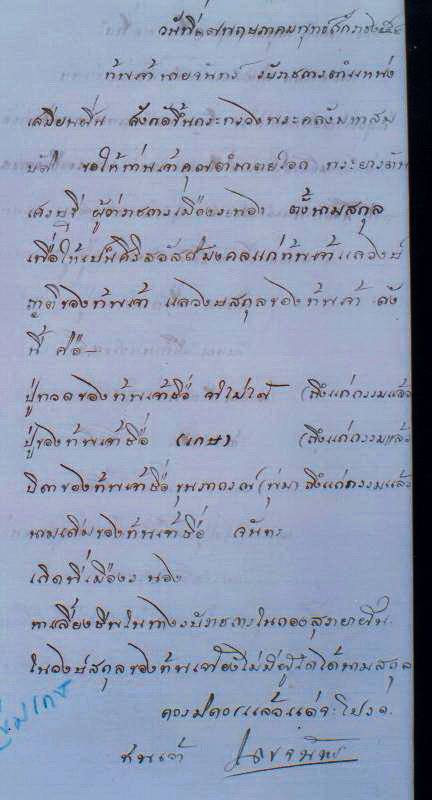 วันที่ ๑๗ พฤษภาคม พุทธศักราช
ข้าพเจ้า นายจันทร์ รับราชการตำแหน่ง
เสมียนฝิ่น สังกัดขึ้นกระทรวงพระคลังมหาสม
บัติ ขอให้ท่านเจ้าคุณอำมาตย์โอก พระยารัตน
เศรษฐี ผู้ว่าราชการเมืองระนอง ตั้งนามสกุล
เพื่อให้เปนศิริสวัสดิมงคลแก่ข้าพเจ้า แลวงษ์
ญาติของข้าพเจ้า แลวงษสกุลของข้าพเจ้า ดัง
นี้ คือ -
ปู่ทวดของข้าพเจ้าชื่อ จำไม่ได้ (ถึงแก่กรรมแล้ว
ปู่ของข้าพเจ้าชื่อ (เกษ) (ถึงแก่กรรมแล้ว
บิดาของข้าพเจ้าชื่อ ขุน (พุ่ม) ถึงแก่กรรมแล้ว
นามเดิมของข้าพเจ้าชื่อ จันทร
เกิดที่เมืองระนอง
หาเลี้ยงชีพในทางรับราชการในกองสุรายาฝิ่น
ในวงษ์สกุลของข้าพเจ้ายังไม่มีผู้ใดได้นามสกุล
ควรมิควรแล้วแต่จะโปรด
พุ่มเกษ
ชนเจ้า นายจันทร